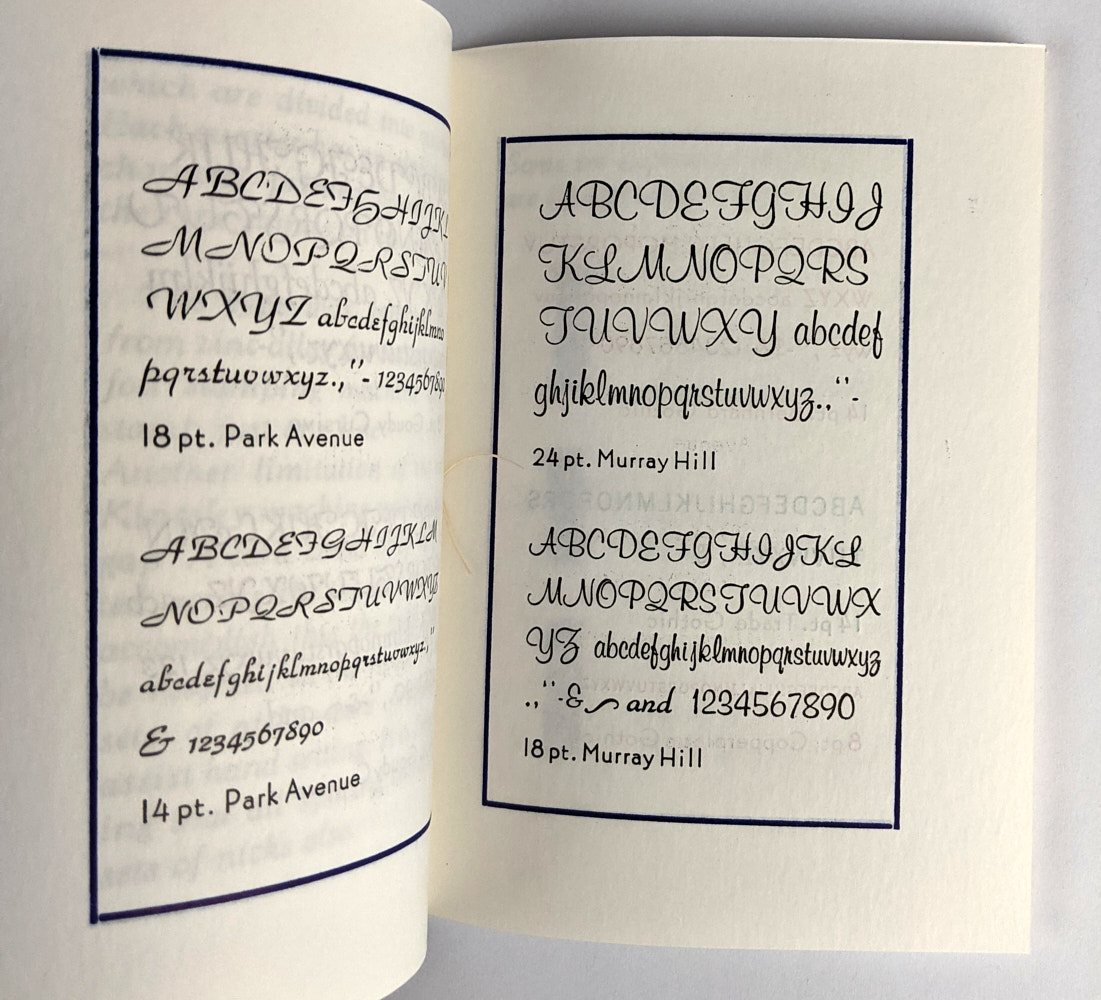 ABCDEFGHIJKL
MNOPQRSTUV
WXYZ abcdefghijklmno
pqrstuvwxyz.,''- 1234567890
18 pt. Park Avenue
ABCDEFGHIJKLM
NOPQRSTUVWXYZ
abcdefghijklmnopqrstuvwxyz.,''
& 1234567890
14 pt. Park Avenue
ABCDEFGHIJ
KLMNOPQRS
TUVWXY abcdef
ghjiklmnopqrstuvwxyz.,‘'-
24 pt. Murray Hill
ABCDEFGHIJKL
MNOPQRSTUVWX
YZ abcdefghijklmnopqrstuvwxyz
.,''-&~and 1234567890
18 pt. Murray Hill